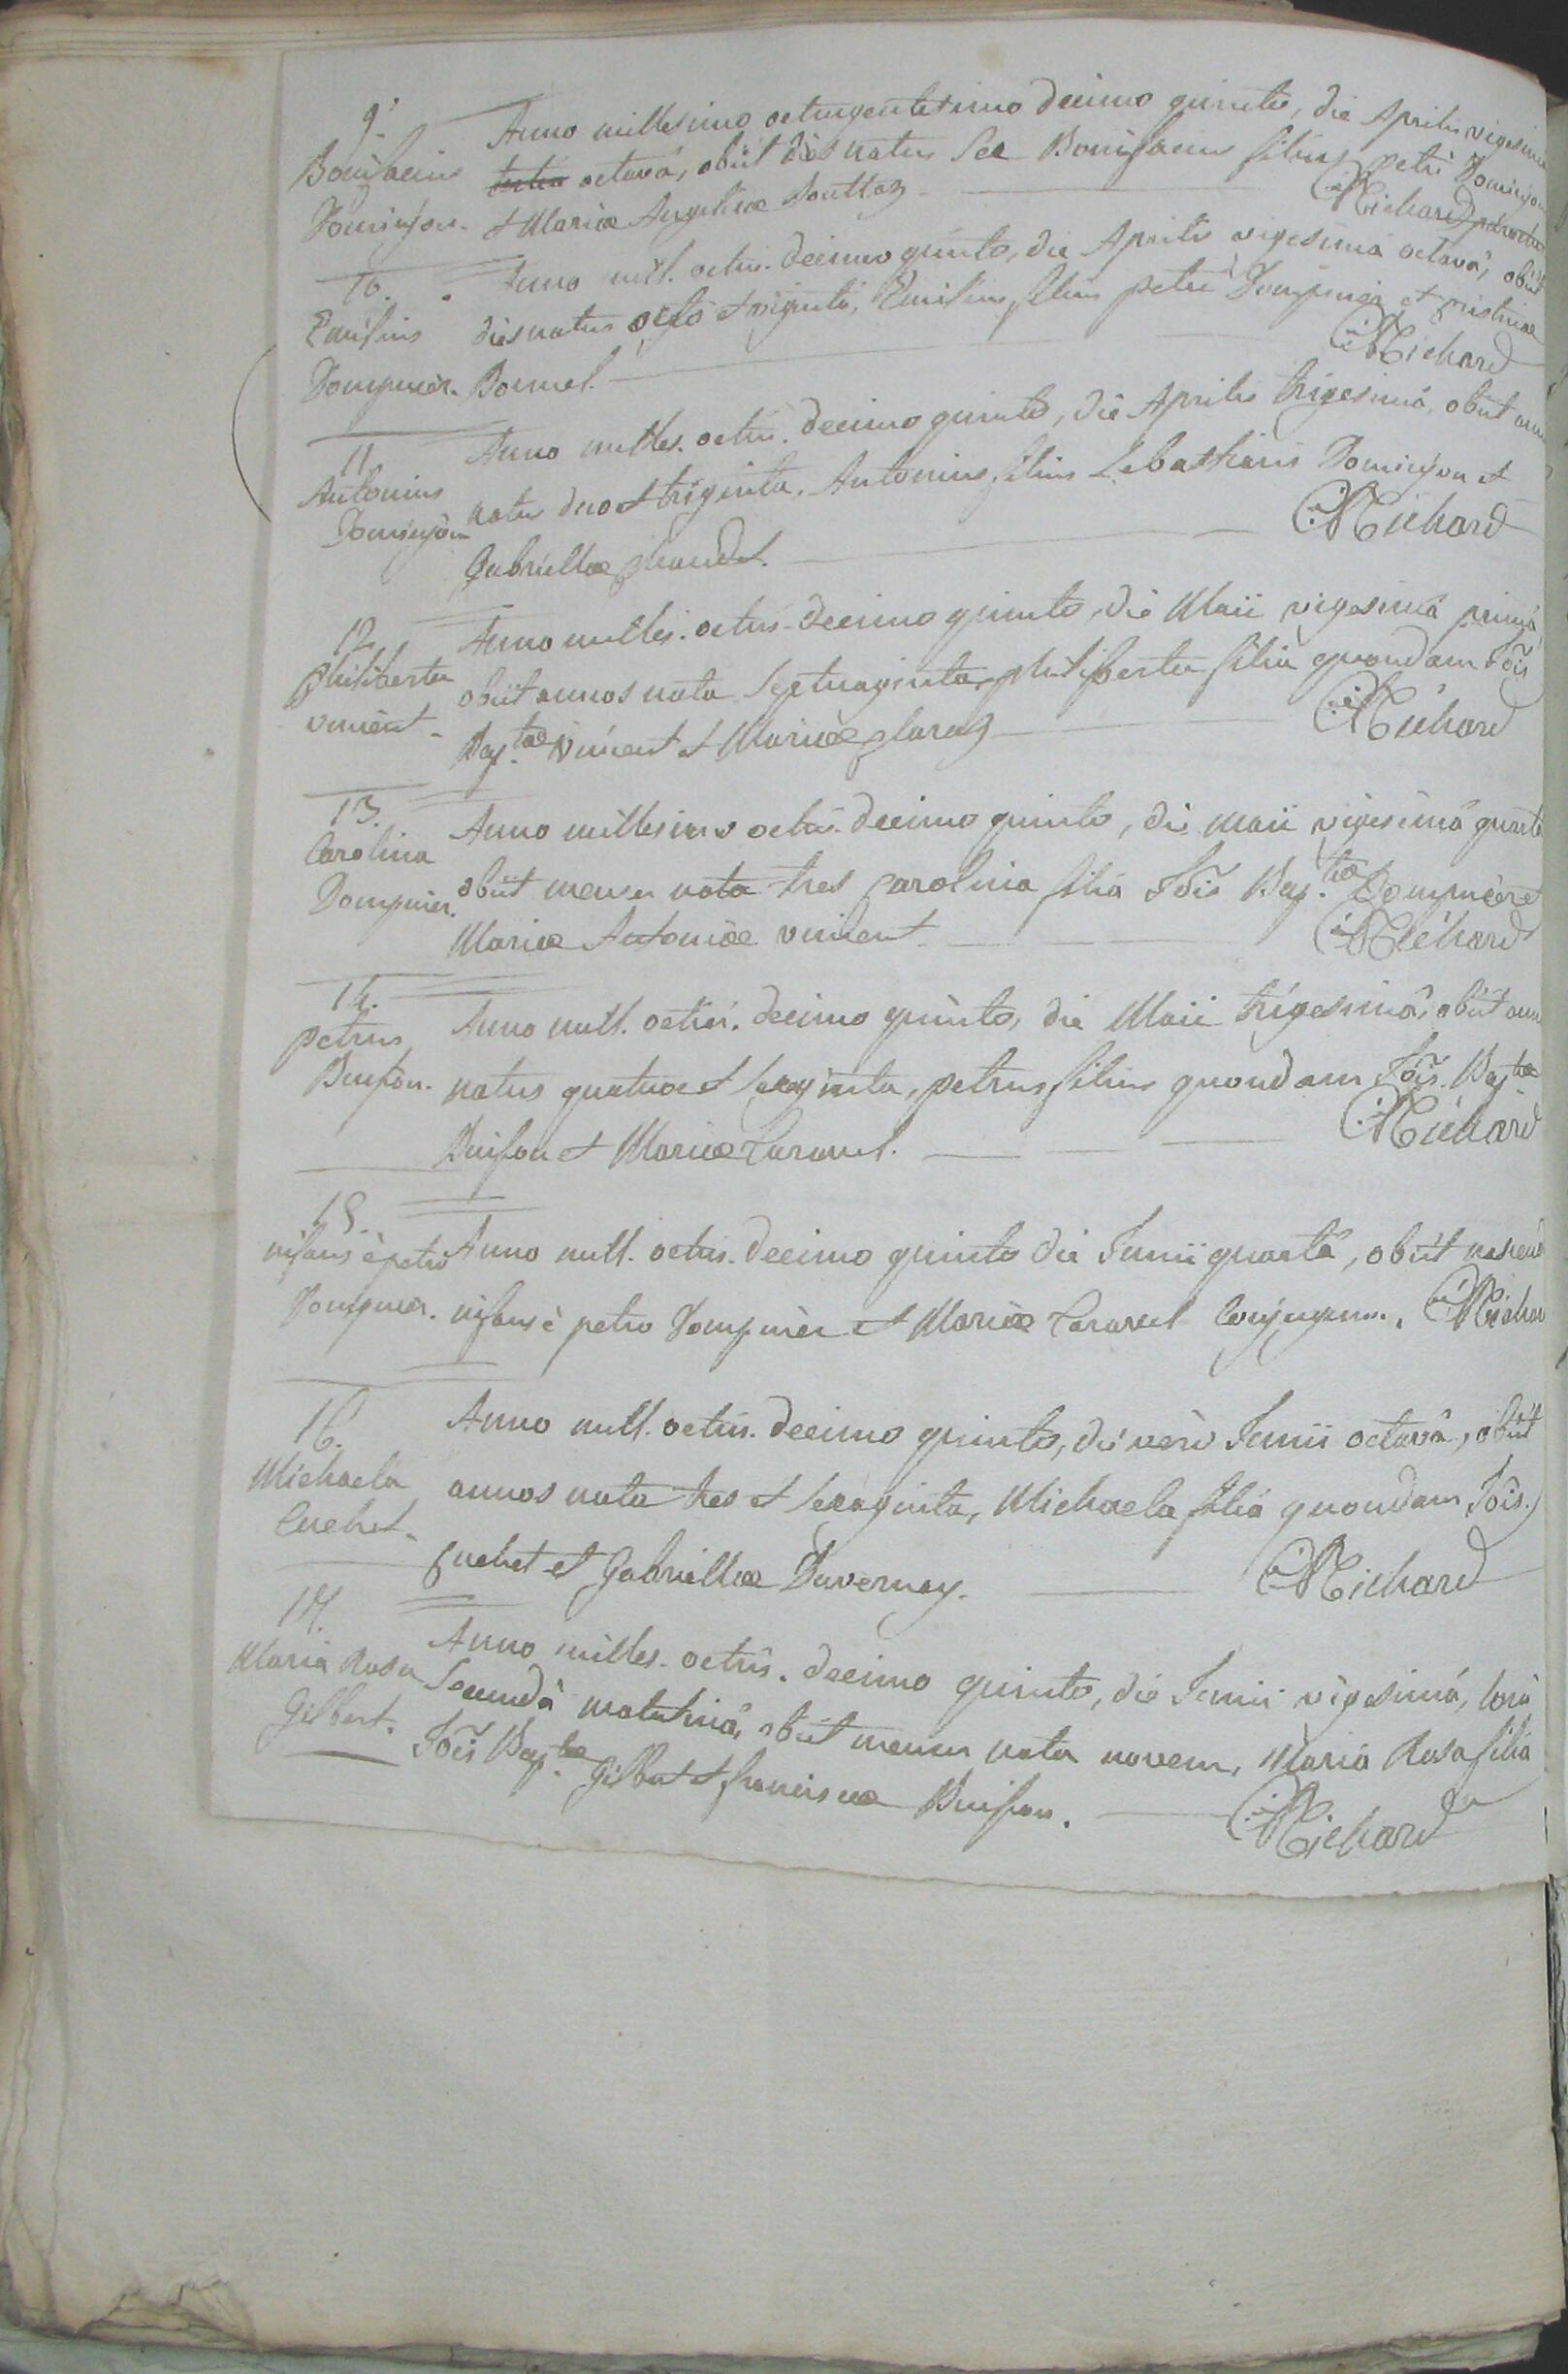 9.
Bonifacius
Dominjon.
Anno millesimo octingentesimo decimo quinto, die Aprilis vigesima
tertia octavâ, obiit dies natus sex Bonifacius filius petri Dominjon
et Mariæ Angelicæ
Richard parochus
10.
Emilius
Dompnier.
Anno mill. octin. decimo quinto, die Aprilis vigesimâ octavâ, obiit
dies natus octo et viginti, Emilius filius petri Dompnier et
Bonnel.
Richard
11.
Antonius
Dominjon
Anno milles. octin. decimo quinto, die Aprilis trigesimâ, obiit ann
natus duo et triginta, Antonius filius Sebastiani Dominjon et
Gabriellæ
Richard
12.
philiberta
vincent.
Anno milles. octin. decimo quinto, die Maii vigesimâ primâ
obiit annos nata septuaginta, philiberta filia quondam Jõis
Bap.tæ Vincent et Mariæ
Richard
13.
Carolina
Dompnier.
Anno millesimo octin. decimo quinto, die maii vigesimâ quarta
obiit menses nata tres Carolina filia Jõis Bap.tæ Dompnier et
Mariæ Antoniæ vincent.
Richard
14.
petrus
Buison.
Anno mill. octin. decimo quinto, die Maii trigesimâ, obiit ann
natus quatuor et sexaginta, petrus filius quondam Jõis. Bap.tæ
Buison et Mariæ Caravel.
Richard
15.
infans è petro
Dompnier.
Anno mill. octin. decimo quinto die Junii quartâ, obiit
infans è petro Dompnier et Mariæ Caravel Conjugum. Richar
16.
Michaela
Cuchet.
Anno mill. octin. decimo quinto, die verò Junii octavâ, obiit
annos nata tres et sexaginta, Michaela filia quondam Jõis.
Cuchet et Gabriellæ Duvernay.
Richard
17.
Maria Rosa
Gilbert.
Anno milles. octin. decimo quinto, die Junii vigesimâ, horâ
Secundâ matutinâ, obiit menses nata novem, Maria Rosa filia
Jõis Bap.tæ Gilbert et franciscæ Buison.
Richard